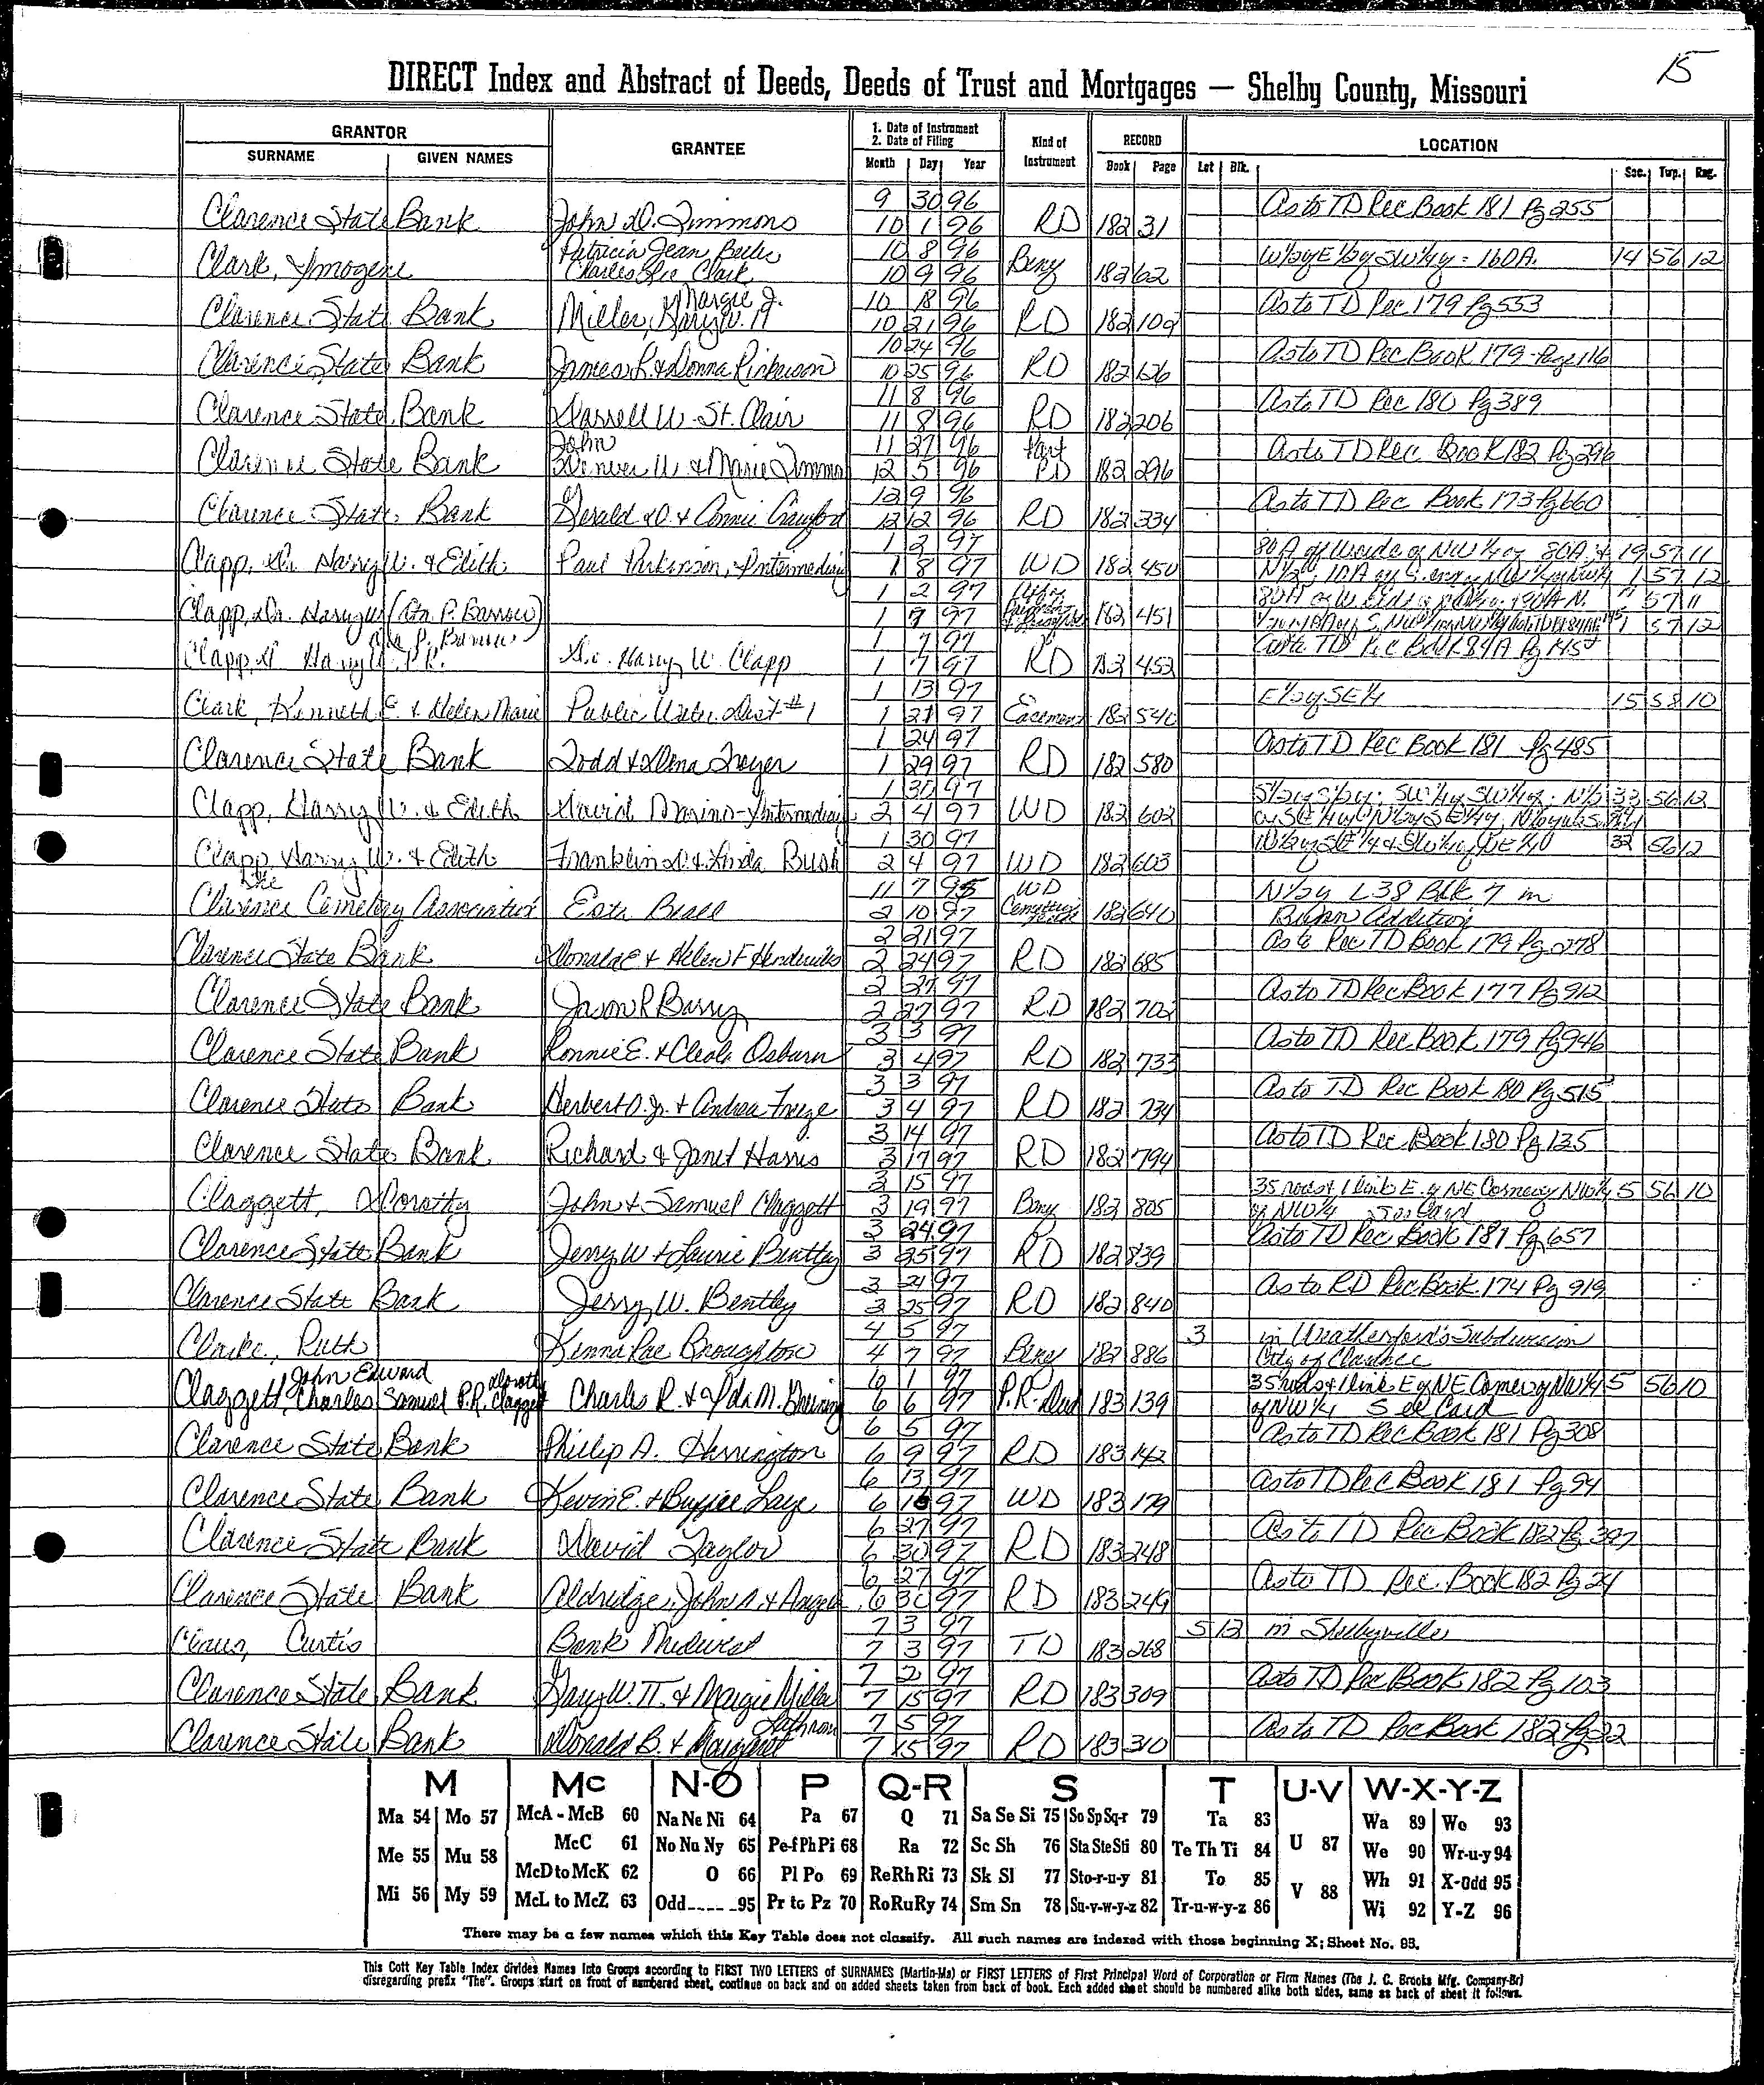 15
DIRECT Index and Abstract of Deeds, Deeds of Trust and Mortgages — Shelby County, Missouri
GRANTOR GRANTEE 1. Date of Instrument 2. Date of Filing Kind of Instrument RECORD LOCATION
SURNAME GIVEN NAMES Month Day Year Book Page Lot Blk. Sec. Twp. Rng.
9 30 96 As to TD Rec Book 181 Pg 255
Clarence State Bank John D. Timmons 10 1 96 RD 182 31
Patricia Jean 10 8 96 W½ of E½ of SW¼ = 160A. 14 56 12
Clark, Imogene Charles Clark 10 9 96 Beny 182 62
Margie J. 10 18 96 As to TD Rec 179 Pg 553
Clarence State Bank Miller, Gary W. II 10 21 96 RD 182 102
10 24 96 As to TD Rec Book 179 Page 116
Clarence State Bank James R. & Donna 10 25 96 RD 182 126
11 8 96 As to TD Rec 180 Pg 389
Clarence State Bank Darrell W. St. Clair 11 8 96 RD 182 206
John 11 27 96 Part As to TD Rec Book 182 Pg 296
Clarence State Bank Denver W. & Marie 12 5 96 RD 182 296
12 9 96 As to TD Rec Book 173 Pg 660
Clarence State Bank Gerald D. & Connie Crawford 12 12 96 RD 182 334
1 2 97 80A off W side of NW¼ 19 57 11
Clapp, Dr. Harry W. & Edith Paul Parkinson, Intermediary 1 8 97 WD 182 450 1 57 12
1 2 97 57 11
Clapp, Dr. Harry W. 1 7 97 182 451 1 57 12
1 7 97 As to TD Rec Book 84A
Clapp, Dr. Harry W. P.R. Dr. Harry W. Clapp 1 7 97 RD 182 452
1 13 97 E½ of SE¼ 15 58 10
Clark, Kenneth E. & Helen Marie Public Water Dist #1 1 21 97 Easement 182 540
1 24 97 As to TD Rec Book 181 Pg 485
Clarence State Bank Todd & Dena 1 29 97 RD 182 580
1 30 97 33 56 12
Clapp, Harry W. & Edith David Marino-Intermediary 2 4 97 WD 182 602
1 30 97 32 56 12
Clapp, Harry W. & Edith Franklin D. & Linda Bush 2 4 97 WD 182 603
The 11 7 95 WD N½ of L38 Blk 7 in
Clarence Cemetery Association 2 10 97 Cemetery 182 640 Bunn Addition
2 21 97 As to Rec TD Book 179 Pg 278
Clarence State Bank Donald E & Helen F 2 24 97 RD 182 685
2 27 97 As to TD Rec Book 177 Pg 912
Clarence State Bank Jason R Barry 2 27 97 RD 182 702
3 3 97 As to TD Rec Book 179 Pg 946
Clarence State Bank Ronnie E. & Osburn 3 4 97 RD 182 733
3 3 97 As to TD Rec Book 180 Pg 515
Clarence State Bank Herbert D. Jr. & Andrea 3 4 97 RD 182 734
3 14 97 As to TD Rec Book 180 Pg 135
Clarence State Bank Richard & Janet Harris 3 17 97 RD 182 794
3 15 97 35 rods & 1 link E of NE Corner of NW¼ 5 56 10
Claggett, Dorothy John & Samuel Claggett 3 19 97 Beny 182 805 of NW¼ See Card
3 24 97 As to TD Rec Book 181 Pg 657
Clarence State Bank Jerry W & Laurie Bentley 3 25 97 RD 182 839
3 21 97 As to RD Rec Book 174 Pg 919
Clarence State Bank Jerry W. Bentley 3 25 97 RD 182 840
4 5 97 3 in Weatherford's Subdivision
Clarke, Ruth Kenna Rae Broughton 4 7 97 Beny 182 886 City of Clarence
John Edward Dorothy 6 1 97 35 rods & 1 link E of NE Corner of NW¼ 5 56 10
Claggett, Charles Samuel P.R. Claggett Charles R. & Ida M. 6 6 97 P.R. Deed 183 139 of NW¼ See Card
6 5 97 As to TD Rec Book 181 Pg 308
Clarence State Bank Phillip A. Herrington 6 9 97 RD 183 142
6 13 97 As to TD Rec Book 181 Pg 94
Clarence State Bank Kevin E. & Laye 6 16 97 WD 183 179
6 27 97 As to TD Rec Book 182 Pg 397
Clarence State Bank David Taylor 6 30 97 RD 183 248
6 27 97 As to TD Rec. Book 182 Pg 24
Clarence State Bank Aldridge, John D. & 6 30 97 RD 183 249
7 3 97 5 12 in Shelbyville
Curtis Bank Midwest 7 3 97 TD 183 268
7 2 97 As to TD Rec Book 182 Pg 103
Clarence State Bank Gary W. II. & Margie Miller 7 15 97 RD 183 309
Lathrom 7 5 97 As to TD Rec Book 182 Pg 22
Clarence State Bank Donald B. & Margaret 7 15 97 RD 183 310
M Mc N-O P Q-R S T U-V W-X-Y-Z
Ma 54 Mo 57 McA - McB 60 Na Ne Ni 64 Pa 67 Q 71 Sa Se Si 75 So Sp Sq-r 79 Ta 83 Wa 89 Wo 93
Me 55 Mu 58 McC 61 No Nu Ny 65 Pe-f Ph Pi 68 Ra 72 Sc Sh 76 Sta Ste Sti 80 Te Th Ti 84 U 87 We 90 Wr-u-y 94
McD to McK 62 O 66 Pl Po 69 Re Rh Ri 73 Sk Sl 77 Sto-r-u-y 81 To 85 V 88 Wh 91 X-Odd 95
Mi 56 My 59 McL to McZ 63 Odd 95 Pr to Pz 70 Ro Ru Ry 74 Sm Sn 78 Su-v-w-y-z 82 Tr-u-w-y-z 86 Wi 92 Y-Z 96
There may be a few names which this Key Table does not classify. All such names are indexed with those beginning X; Sheet No. 95.
This Cott Key Table Index divides Names Into Groups according to FIRST TWO LETTERS of SURNAMES (Martin-Ma) or FIRST LETTERS of First Principal Word of Corporation or Firm Names (The J. C. Brooks Mfg. Company-Br)
disregarding prefix "The". Groups start on front of numbered sheet, continue on back and on added sheets taken from back of book. Each added sheet should be numbered alike both sides, same as back of sheet it follows.